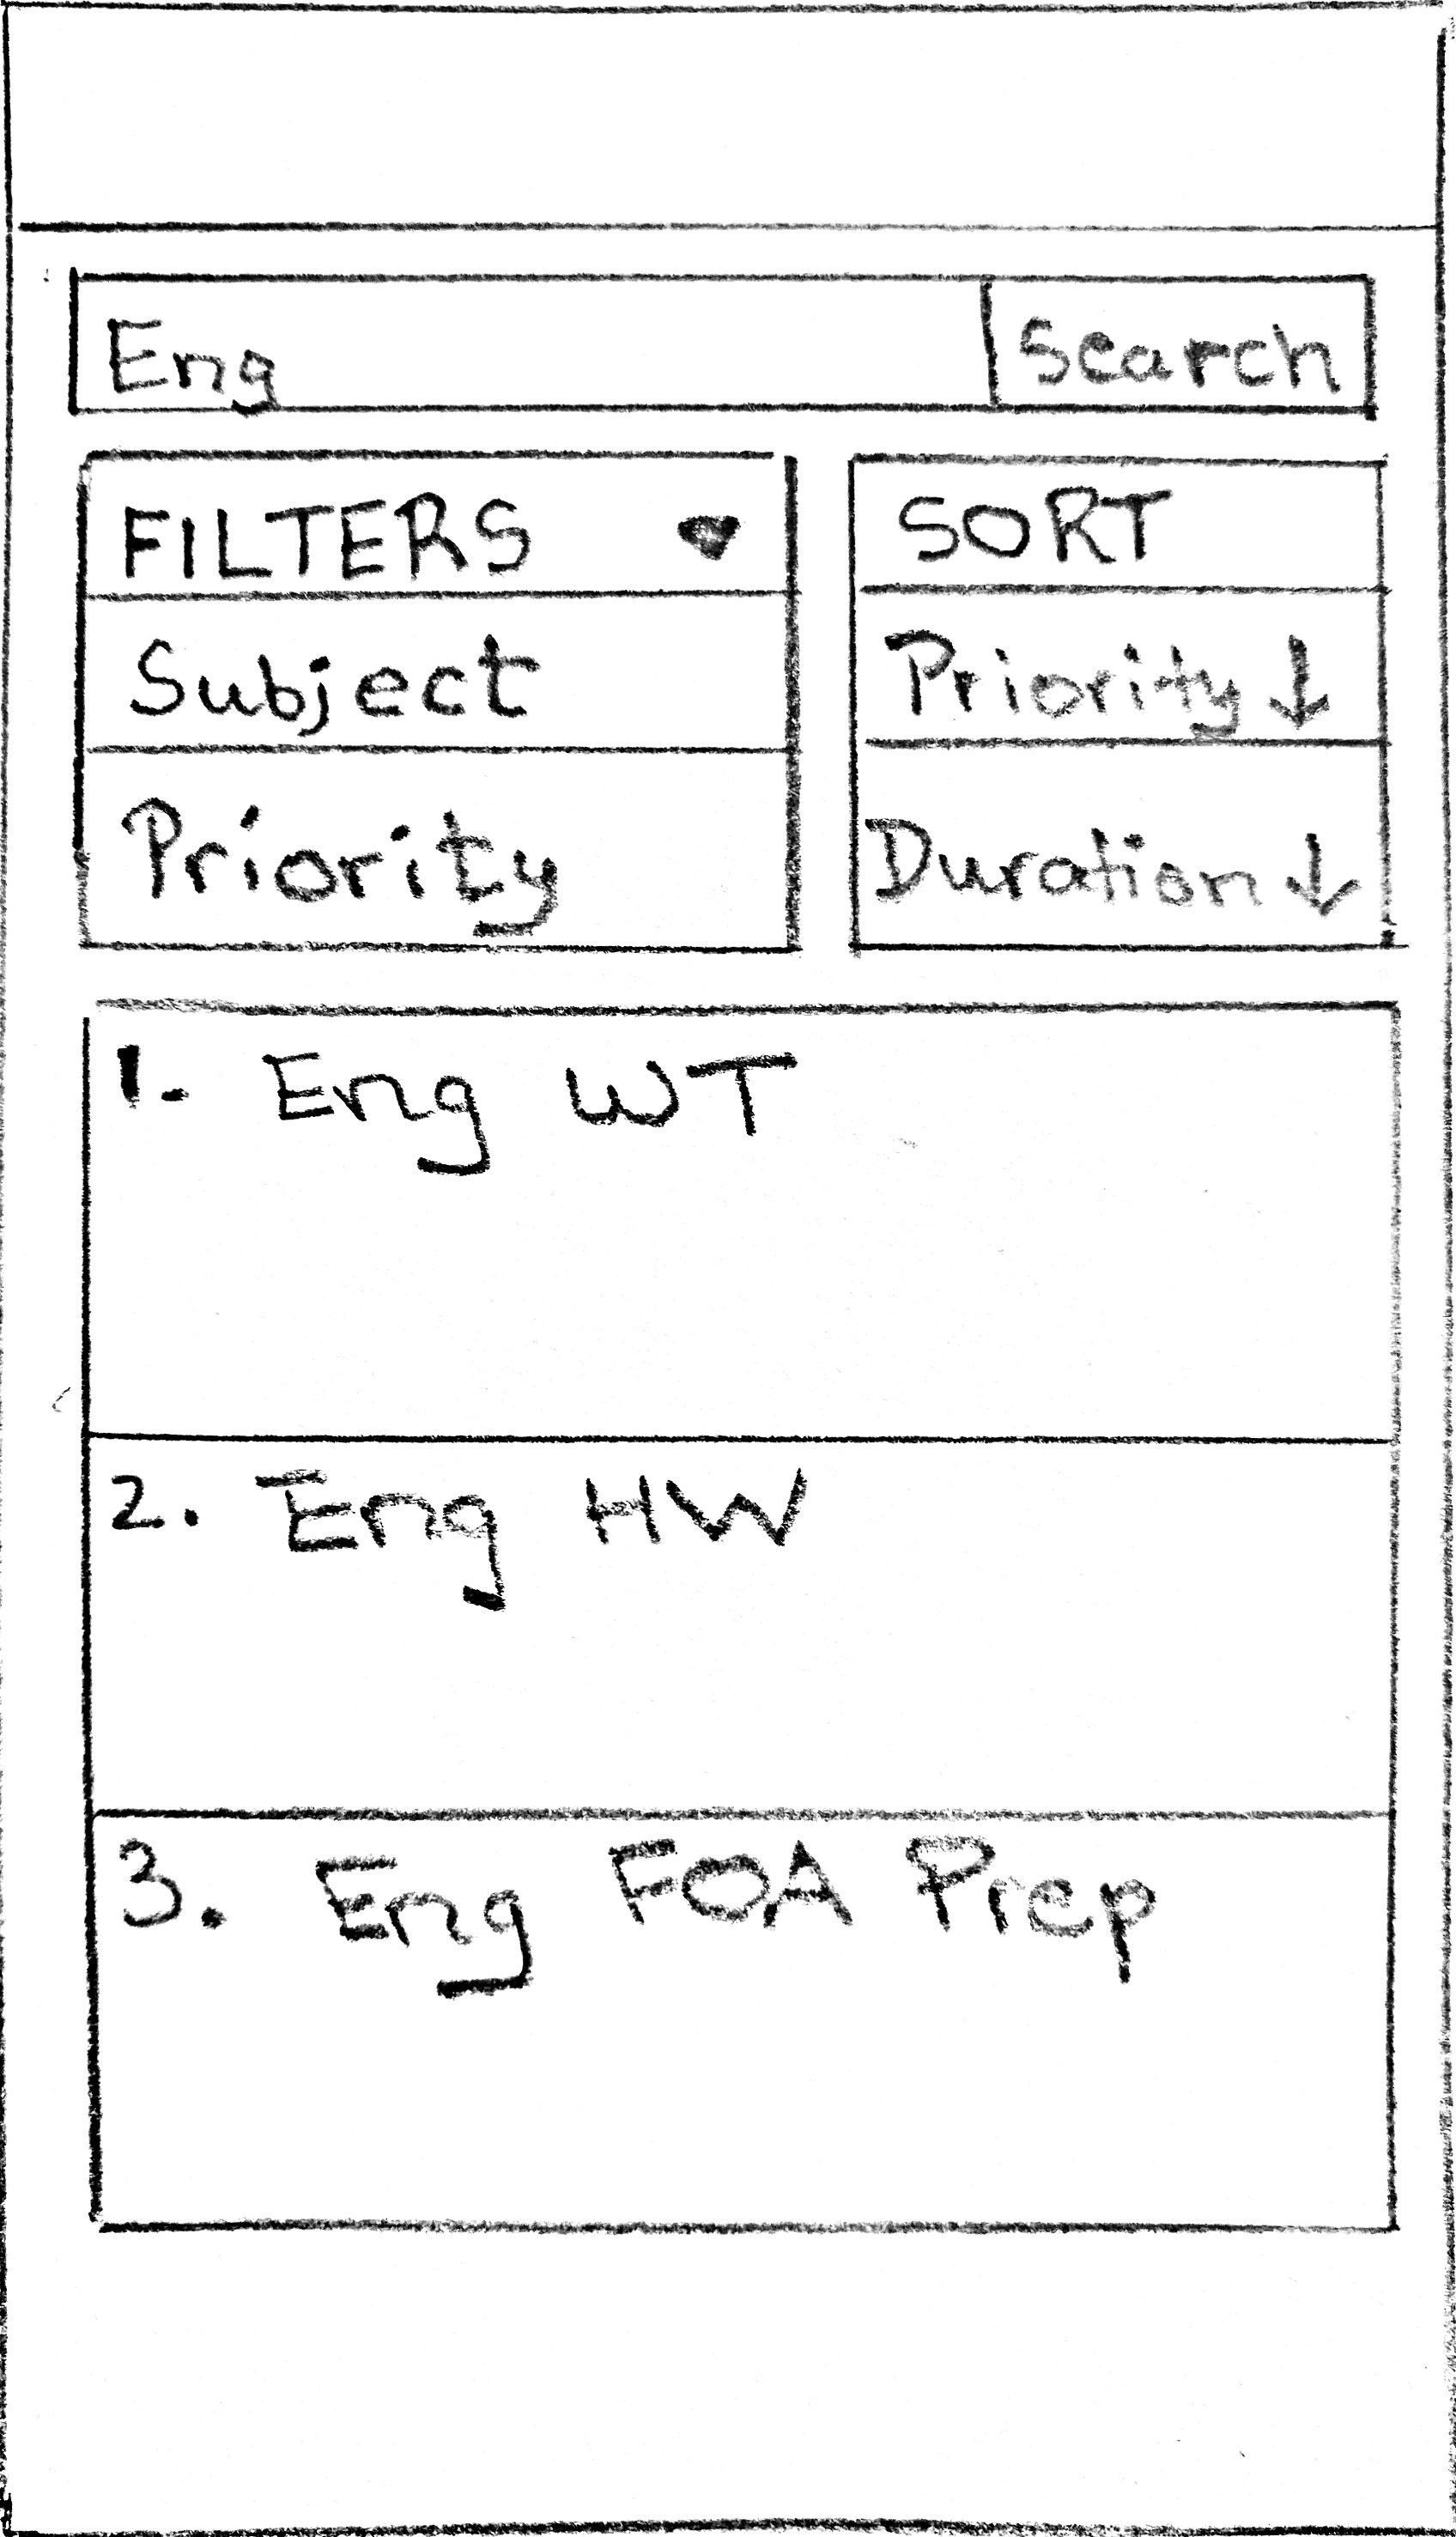 Eng Search
FILTERS
Subject
Priority
SORT
Priority ↓
Duration ↓
1. Eng WT
2. Eng HW
3. Eng FOA Prep